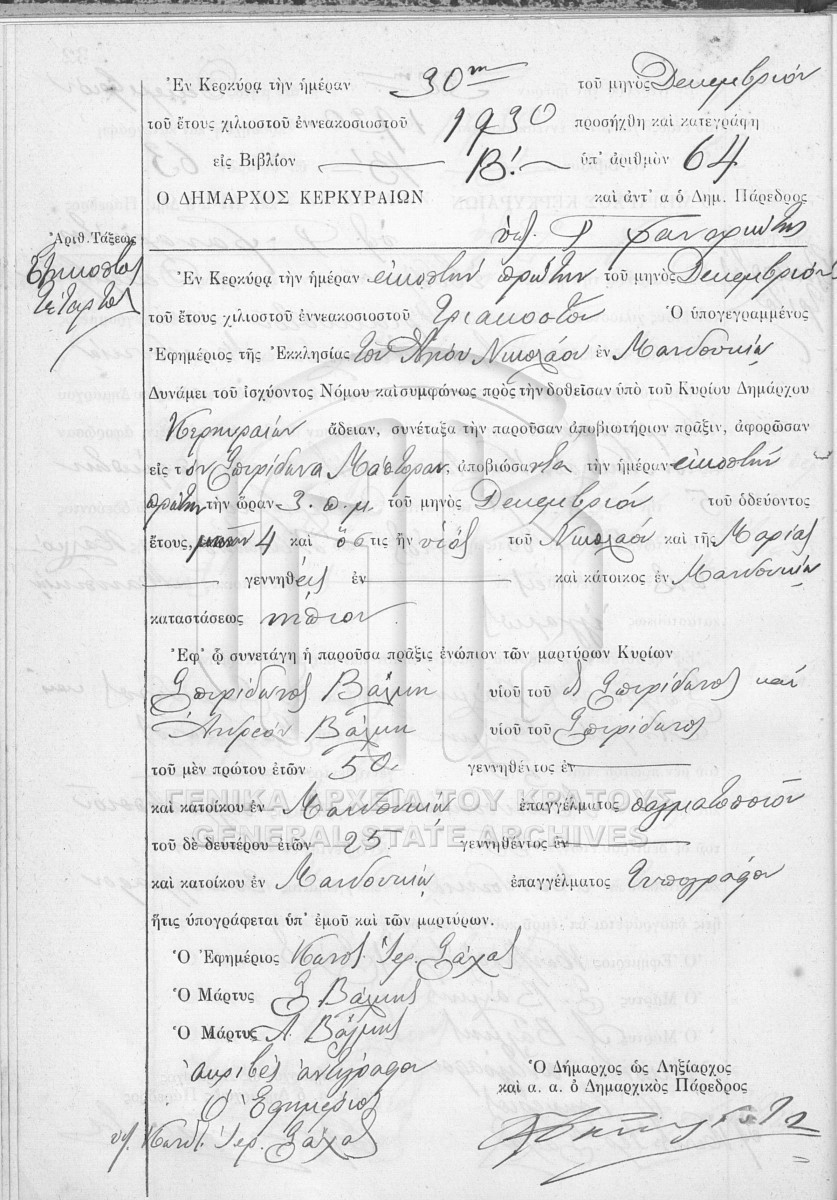 Ἐν Κερκύρᾳ τὴν ἡμέραν 30ην τοῦ μηνὸς Δεκεμβρίου
τοῦ ἔτους χιλιοστοῦ ἐννεακοσιοστοῦ 1930 προσήχθη καὶ κατεγράφη
εἰς Βιβλίον Β! ὑπ' ἀριθμὸν 64
Ο ΔΗΜΑΡΧΟΣ ΚΕΡΚΥΡΑΙΩΝ καὶ ἀντ' α ὁ Δημ. Πάρεδρος
Ἀριθ. Τάξεως
Εἰκοστὸς
Τέταρτος
Ἐν Κερκύρᾳ τὴν ἡμέραν εἰκοστὴν πρώτην τοῦ μηνὸς Δεκεμβρίου
τοῦ ἔτους χιλιοστοῦ ἐννεακοσιοστοῦ τριακοστοῦ Ὁ ὑπογεγραμμένος
Ἐφημέριος τῆς Ἐκκλησίας τοῦ Ἁγίου Νικολάου ἐν Μανδουκίῳ
Δυνάμει τοῦ ἰσχύοντος Νόμου καὶ συμφώνως πρὸς τὴν δοθεῖσαν ὑπὸ τοῦ Κυρίου Δημάρχου
Κερκυραίων ἄδειαν, συνέταξα τὴν παροῦσαν ἀποβιωτήριον πρᾶξιν, ἀφορῶσαν
εἰς τὸν Σπυρίδωνα Μάστοραν, ἀποβιώσαντα τὴν ἡμέραν εἰκοστὴν
πρώτην τὴν ὥραν 3. π. μ. τοῦ μηνὸς Δεκεμβρίου τοῦ ὁδεύοντος
ἔτους, 4 καὶ ὅστις ἦν υἱὸς τοῦ Νικολάου καὶ τῆς Μαρίας
γεννηθεὶς ἐν καὶ κάτοικος ἐν Μανδουκίῳ
καταστάσεως νήπιον.
Ἐφ' ᾧ συνετάγη ἡ παροῦσα πρᾶξις ἐνώπιον τῶν μαρτύρων Κυρίων
Σπυρίδωνος Βάλμη υἱοῦ τοῦ Σπυρίδωνος καὶ
Ἀνδρέου Βάλμη υἱοῦ τοῦ Σπυρίδωνος
τοῦ μὲν πρώτου ἐτῶν 50 γεννηθέντος ἐν
καὶ κατοίκου ἐν Μανδουκίῳ ἐπαγγέλματος παλματοποιοῦ
ΓΕΝΙΚΑ ΑΡΧΕΙΑ ΤΟΥ ΚΡΑΤΟΥΣ
GENERAL STATE ARCHIVES
τοῦ δὲ δευτέρου ἐτῶν 25 γεννηθέντος ἐν
καὶ κατοίκου ἐν Μανδουκίῳ ἐπαγγέλματος τυπογράφου
ἥτις ὑπογράφεται ὑπ' ἐμοῦ καὶ τῶν μαρτύρων.
Ὁ Ἐφημέριος Κωνστ. Ἱερ. Σάχας
Ὁ Μάρτυς Σ Βάλμης
Ὁ Μάρτυς Α. Βάλμης
ἀκριβὲς ἀντίγραφον
Ὁ Ἐφημέριος
Κωνστ. Ἱερ. Σάχας
Ὁ Δήμαρχος ὡς Ληξίαρχος
καὶ α. α. ὁ Δημαρχικὸς Πάρεδρος